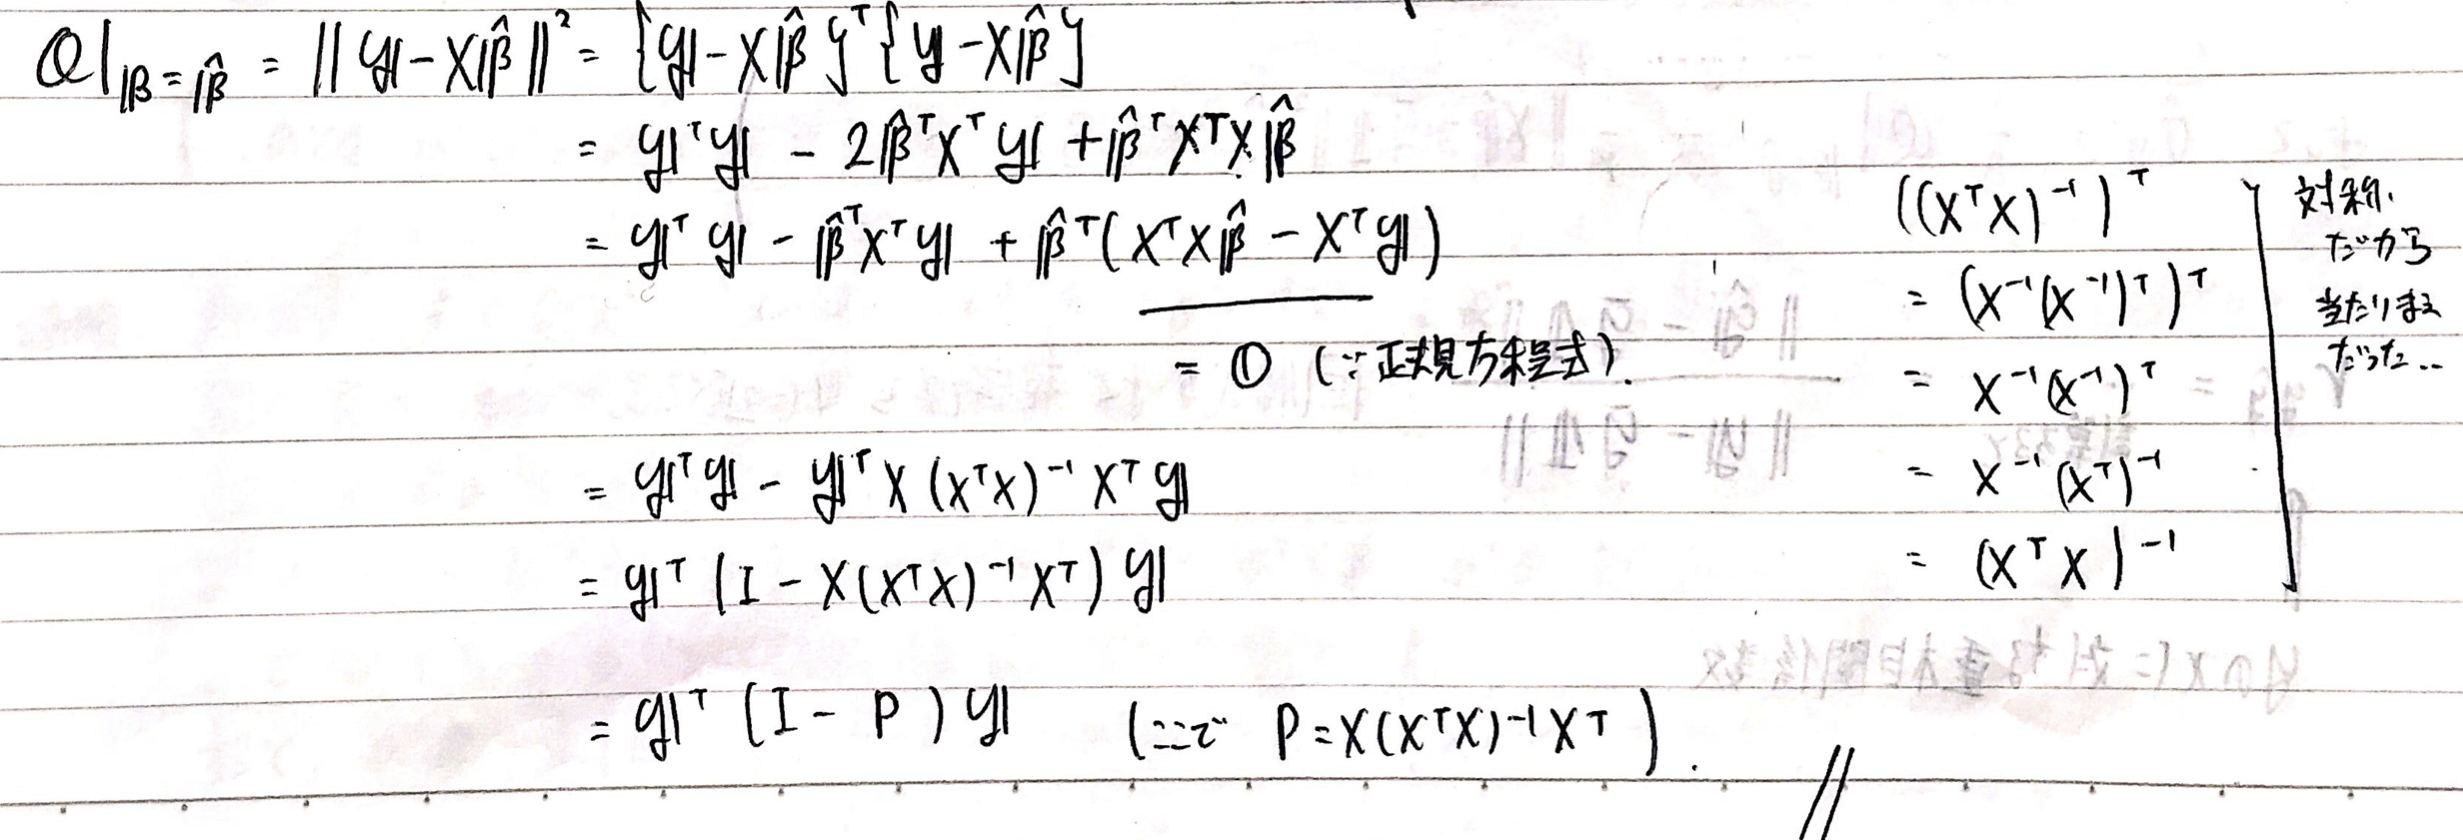 Q|_{β=β̂} = ‖y − Xβ̂‖² = {y − Xβ̂}ᵀ{y − Xβ̂}
= yᵀy − 2β̂ᵀXᵀy + β̂ᵀXᵀXβ̂
= yᵀy − β̂ᵀXᵀy + β̂ᵀ(XᵀXβ̂ − Xᵀy)
= 0 (∵ 正規方程式).
= yᵀy − yᵀX(XᵀX)⁻¹Xᵀy
= yᵀ(I − X(XᵀX)⁻¹Xᵀ)y
= yᵀ(I − P)y (ここで P = X(XᵀX)⁻¹Xᵀ).
((XᵀX)⁻¹)ᵀ
= (X⁻¹(X⁻¹)ᵀ)ᵀ
= X⁻¹(X⁻¹)ᵀ
= X⁻¹(Xᵀ)⁻¹
= (XᵀX)⁻¹
対称.
だから
当たりまえ
だった..